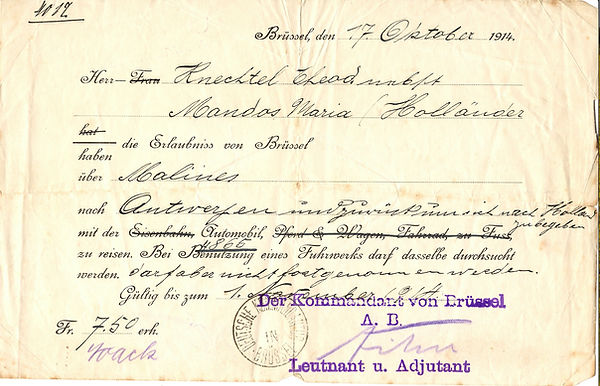 4012
Brüssel, den 17. Oktober 1914.
Herr Frau Knechtel Theod nebst
Mandos Maria (Holländer
hat die Erlaubniss von Brüssel
haben
über Malines
nach Antwerpen und zurück um sich nach Holland
zu begeben
mit der Eisenbahn, Automobil, Pferd & Wagen, Fahrrad, zu Fuss,
4866
zu reisen. Bei Benutzung eines Fuhrwerks darf dasselbe durchsucht
werden. darf aber nicht fortgenommen werden.
Gültig bis zum 1. November 1914
Der Kommandant von Brüssel
A. B.
Fr. 7.50 erh.
Leutnant u. Adjutant